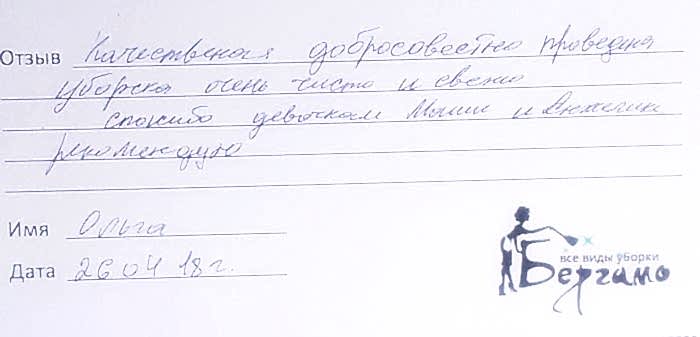 Отзыв Качественная добросовестно проведена
уборка очень чисто и свежо
спасибо девочкам и Анжелике
рекомендую
Имя Ольга
Дата 26 04 18 г.
все виды уборки
Бергамо